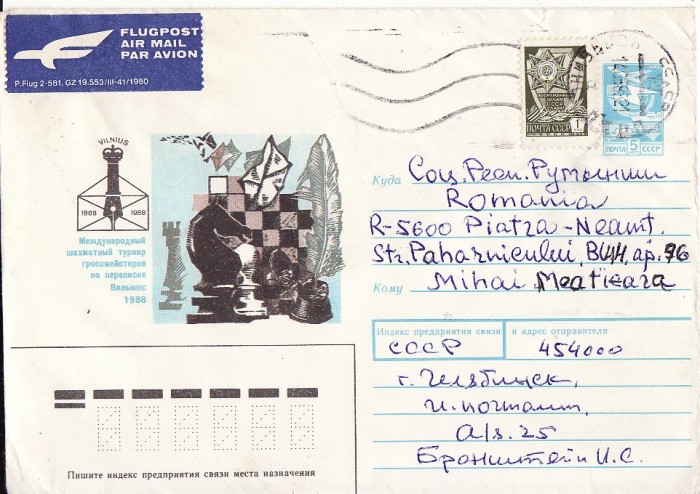 FLUGPOST
AIR MAIL
PAR AVION
P.Flug 2-581. GZ 19.553/III-41/1980
ПОЧТА СССР 1
ПОЧТА 5 СССР
VILNIUS
1888 1988
Международный
шахматный турнир
гроссмейстеров
по переписке
Вильнюс
1988
Куда Соц. Респ. Румынии
Romania
R-5600 Piatra-Neamt.
Str. Paharnicului, Bl.
Кому Mihai
Индекс предприятия связи и адрес отправителя
СССР 454000
г. Челябинск,
а/я. 25
Бронштейн И.С.
Пишите индекс предприятия связи места назначения